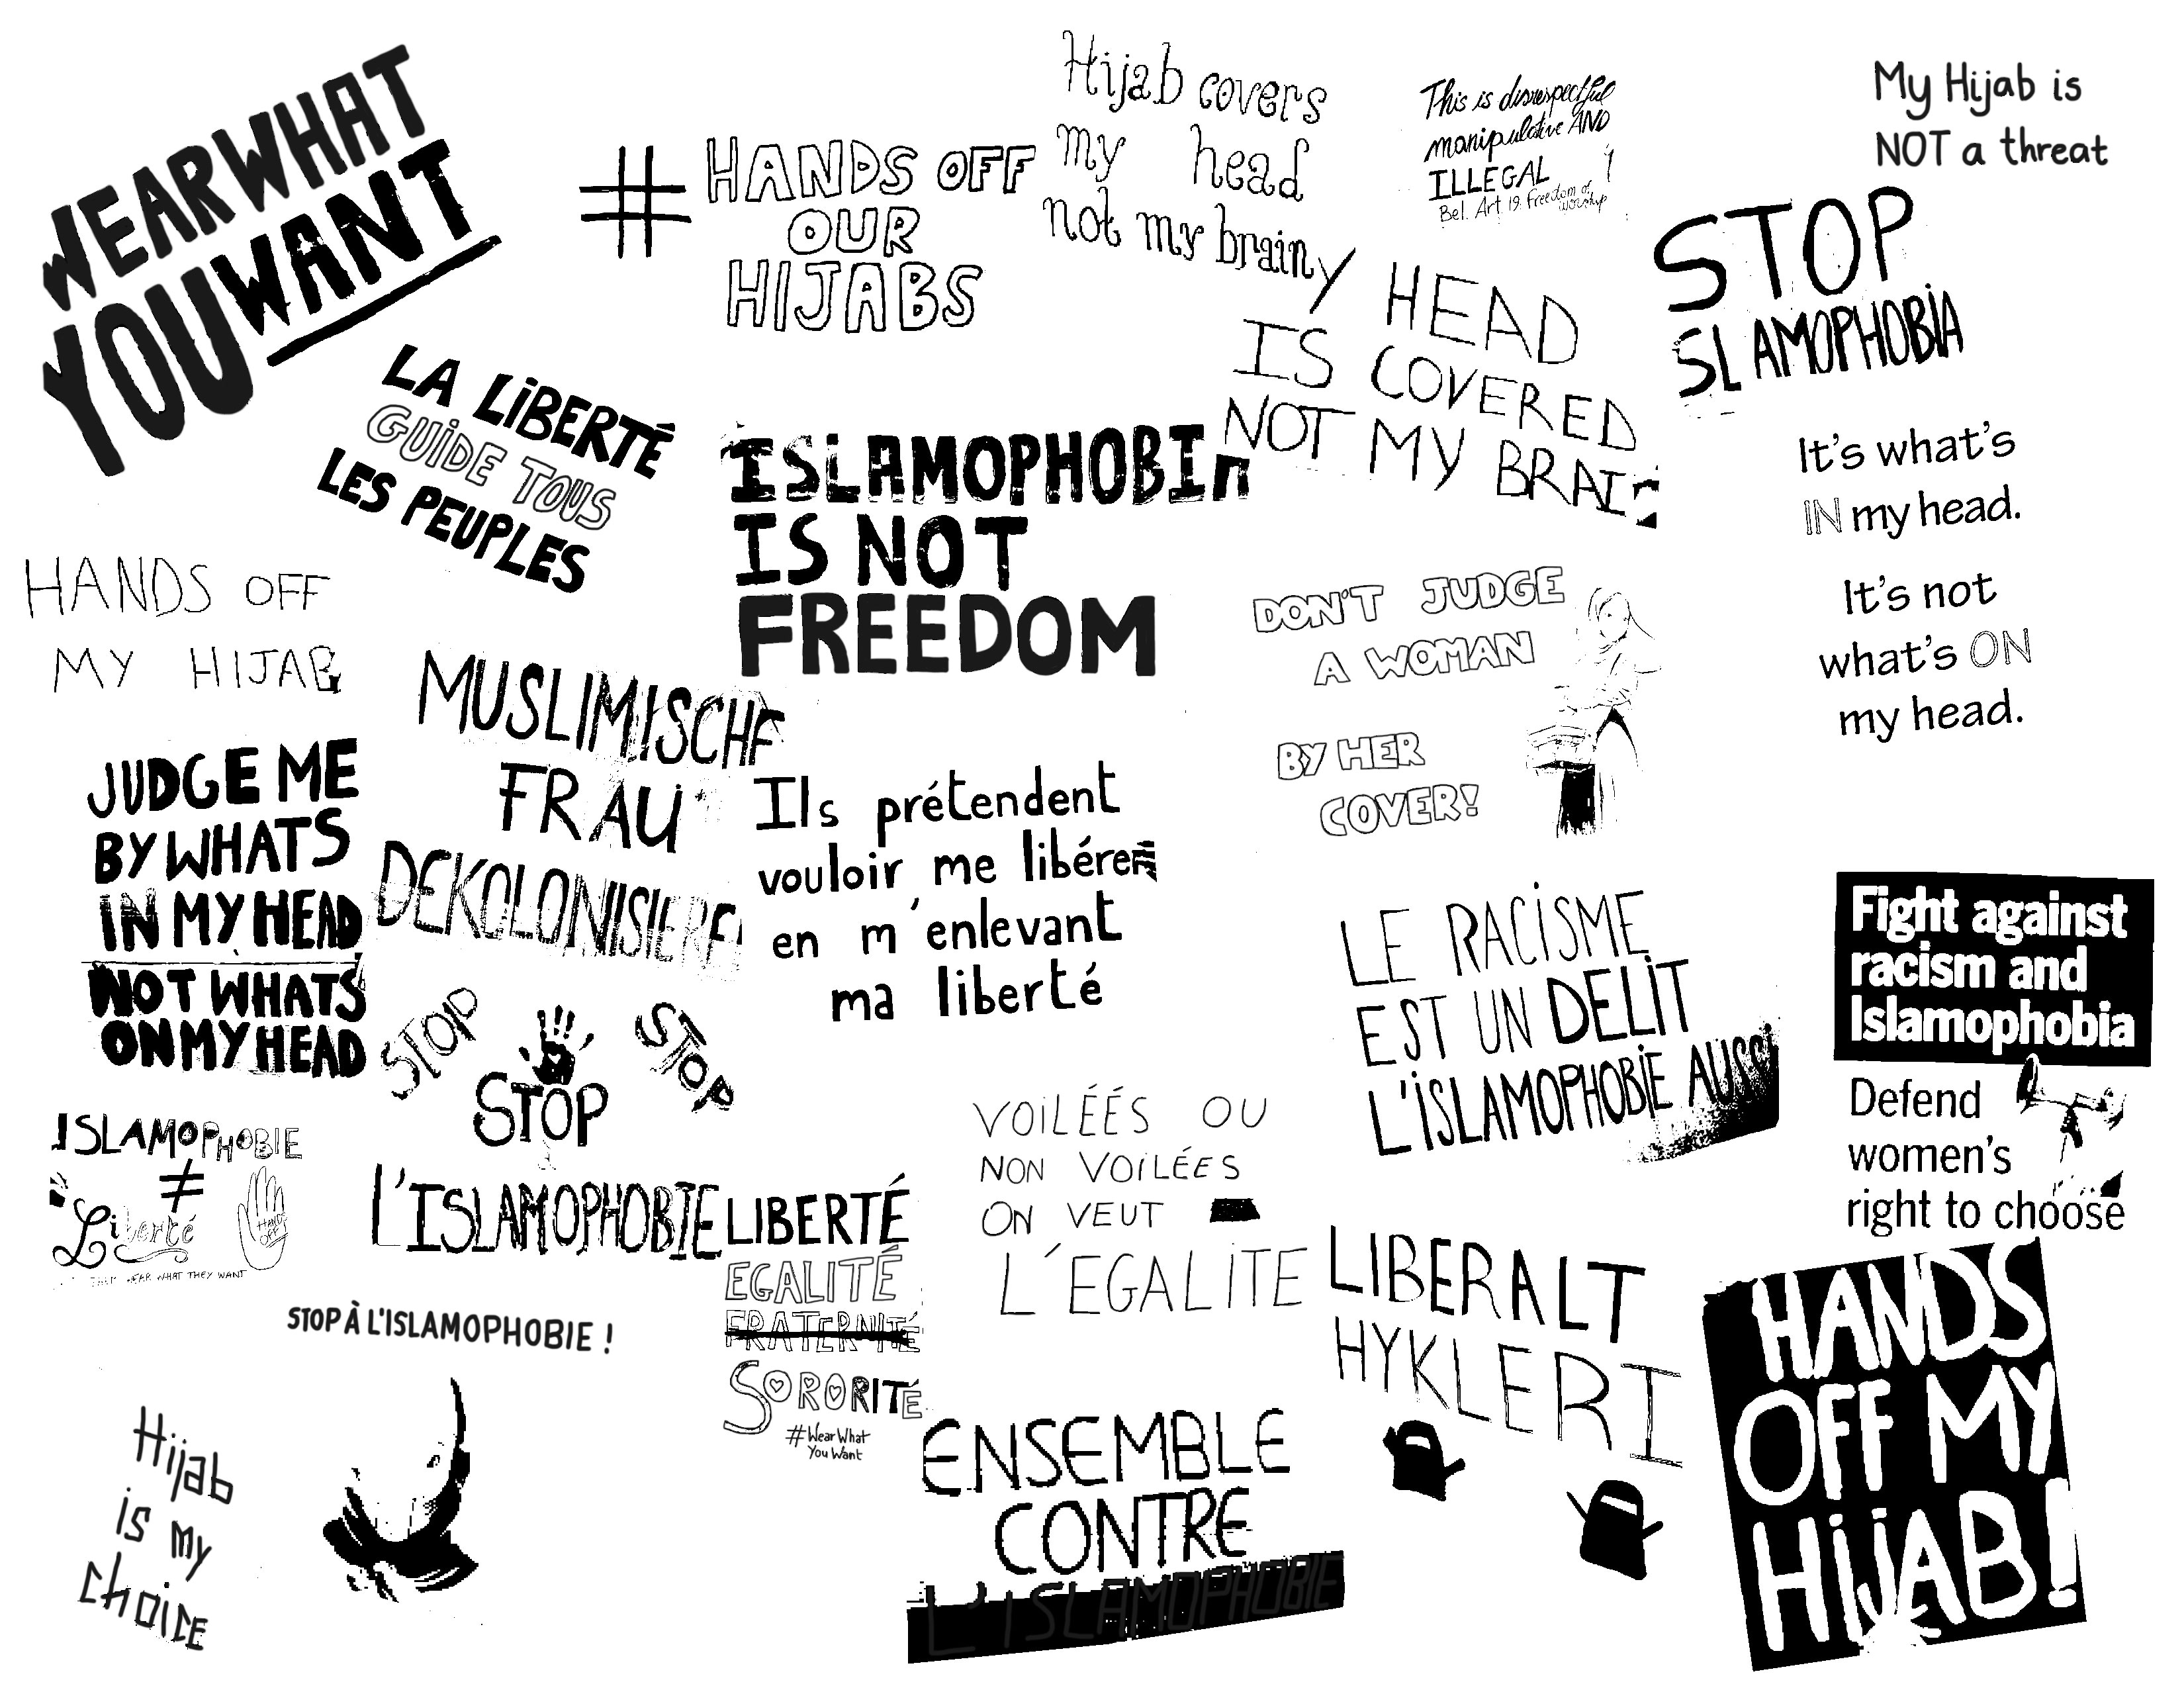 WEAR WHAT
YOU WANT
# HANDS OFF
OUR
HIJABS
Hijab covers
my head
not my brain
This is disrespectful
manipulative AND
ILLEGAL !
Bel. Art 19: Freedom of
worship
My Hijab is
NOT a threat
STOP
ISLAMOPHOBIA
LA LiBERTÉ
GUiDE TOUS
LES PEUPLES
ISLAMOPHOBIA
IS NOT
FREEDOM
Y HEAD
IS COVERED
NOT MY BRAI
It's what's
IN my head.
It's not
what's ON
my head.
HANDS OFF
MY HIJAB
MUSLIMISCHE
FRAU
DEKOLONISIERE
DON'T JUDGE
A WOMAN
BY HER
COVER!
JUDGE ME
BY WHATS
IN MY HEAD
NOT WHATS
ON MY HEAD
Ils prétendent
vouloir me libérer
en m'enlevant
ma liberté
LE RACiSME
EST UN DELiT
L'iSLAMOPHOBiE AUSSi
Fight against
racism and
Islamophobia
Defend
women's
right to choose
STOP STOP
STOP
L'ISLAMOPHOBIE
ISLAMOPHOBIE
≠
Liberté
HANDS
OFF
WEAR WHAT THEY WANT
VOiLÉÉS OU
NON VOiLÉES
ON VEUT
L'EGALiTE
LIBERTÉ
EGALITÉ
FRATERNITÉ
SORORITÉ
#Wear What
You Want
STOP À L'ISLAMOPHOBIE !
LIBERALT
HYKLERI
HANDS
OFF MY
HiJAB!
Hijab
is my
choice
ENSEMBLE
CONTRE
L'ISLAMOPHOBIE